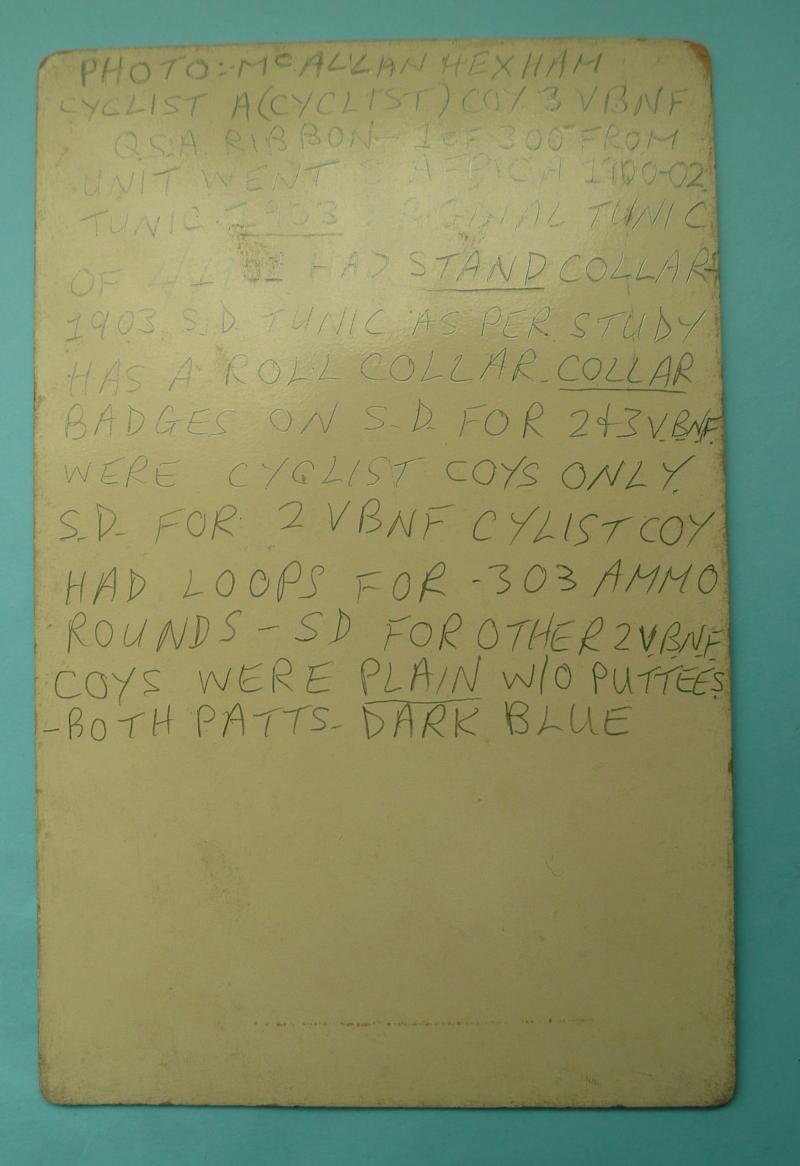 PHOTO:- McALLAN HEXHAM
CYCLIST A (CYCLIST) COY 3 VBNF
QSA RIBBON - 1 OF 300 FROM
UNIT WENT S AFRICA 1900-02
TUNIC 1903 ORIGINAL TUNIC
OF 4/1901 HAD STAND COLLAR-
1903 S.D. TUNIC AS PER STUDY
HAS A ROLL COLLAR. COLLAR
BADGES ON S.D. FOR 2+3 V.B.N.F.
WERE CYCLIST COYS ONLY.
S.D. FOR 2 VBNF CYLIST COY
HAD LOOPS FOR .303 AMMO
ROUNDS - SD FOR OTHER 2 V.B.N.F.
COYS WERE PLAIN W/O PUTTEES
- BOTH PATTS - DARK BLUE